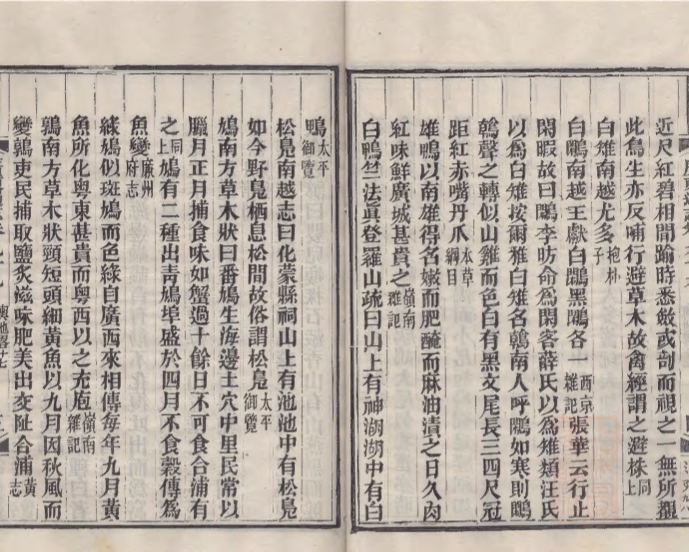 近尺紅碧相間踰時悉斂或剖而視之一無所擢
此鳥生亦反哺行避草木故禽經謂之避株同上
白雉南越尤多抱朴子
白鷴南越王獻白鷴黑鷴各一西京雜記張華云行止
閑暇故曰鷴李昉命爲閑客薛氏以爲雉類汪氏
以爲白雉按爾雅白雉名鶾南人呼鷴如寒則鷴
鶾聲之轉似山雞而色白有黑文尾長三四尺冠
距紅赤嘴丹爪本草綱目
雄鴨以南雄得名嫩而肥醃而麻油漬之日久肉
紅味鮮廣城甚貴之嶺南雜記
白鴨竺法眞登羅山疏曰山上有神湖湖中有白
鴨太平御覽
松鳧南越志曰化蒙縣祠山上有池池中有松鳧
如今野鳧栖息松間故俗謂松鳧太平御覽
鳩南方草木狀曰番鳩生海邊土穴中里民常以
臘月正月捕食味如蟹過十餘日不可食合浦有
之同上鳩有二種出靑鳩埠盛於四月不食穀傳爲
魚變廉州府志
綠鳩似斑鳩而色綠自廣西來相傳每年九月黃
魚所化粤東甚貴而粤西以之充庖嶺南雜記
鶉南方草木狀頸短頭細黃魚以九月因秋風而
變鶉吏民捕取鹽炙滋味肥美出交阯合浦黃志